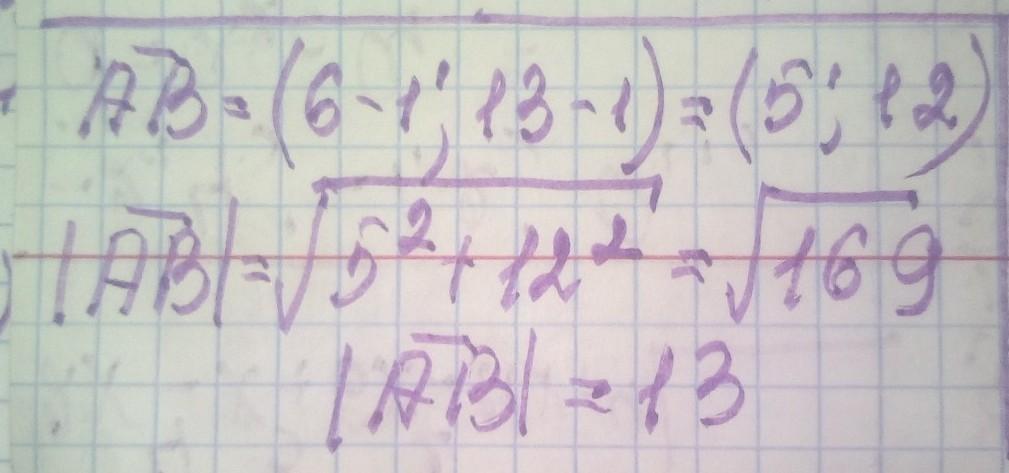 AB = (6-1; 13-1) = (5; 12)
|AB| = √5² + 12² = √169
|AB| = 13